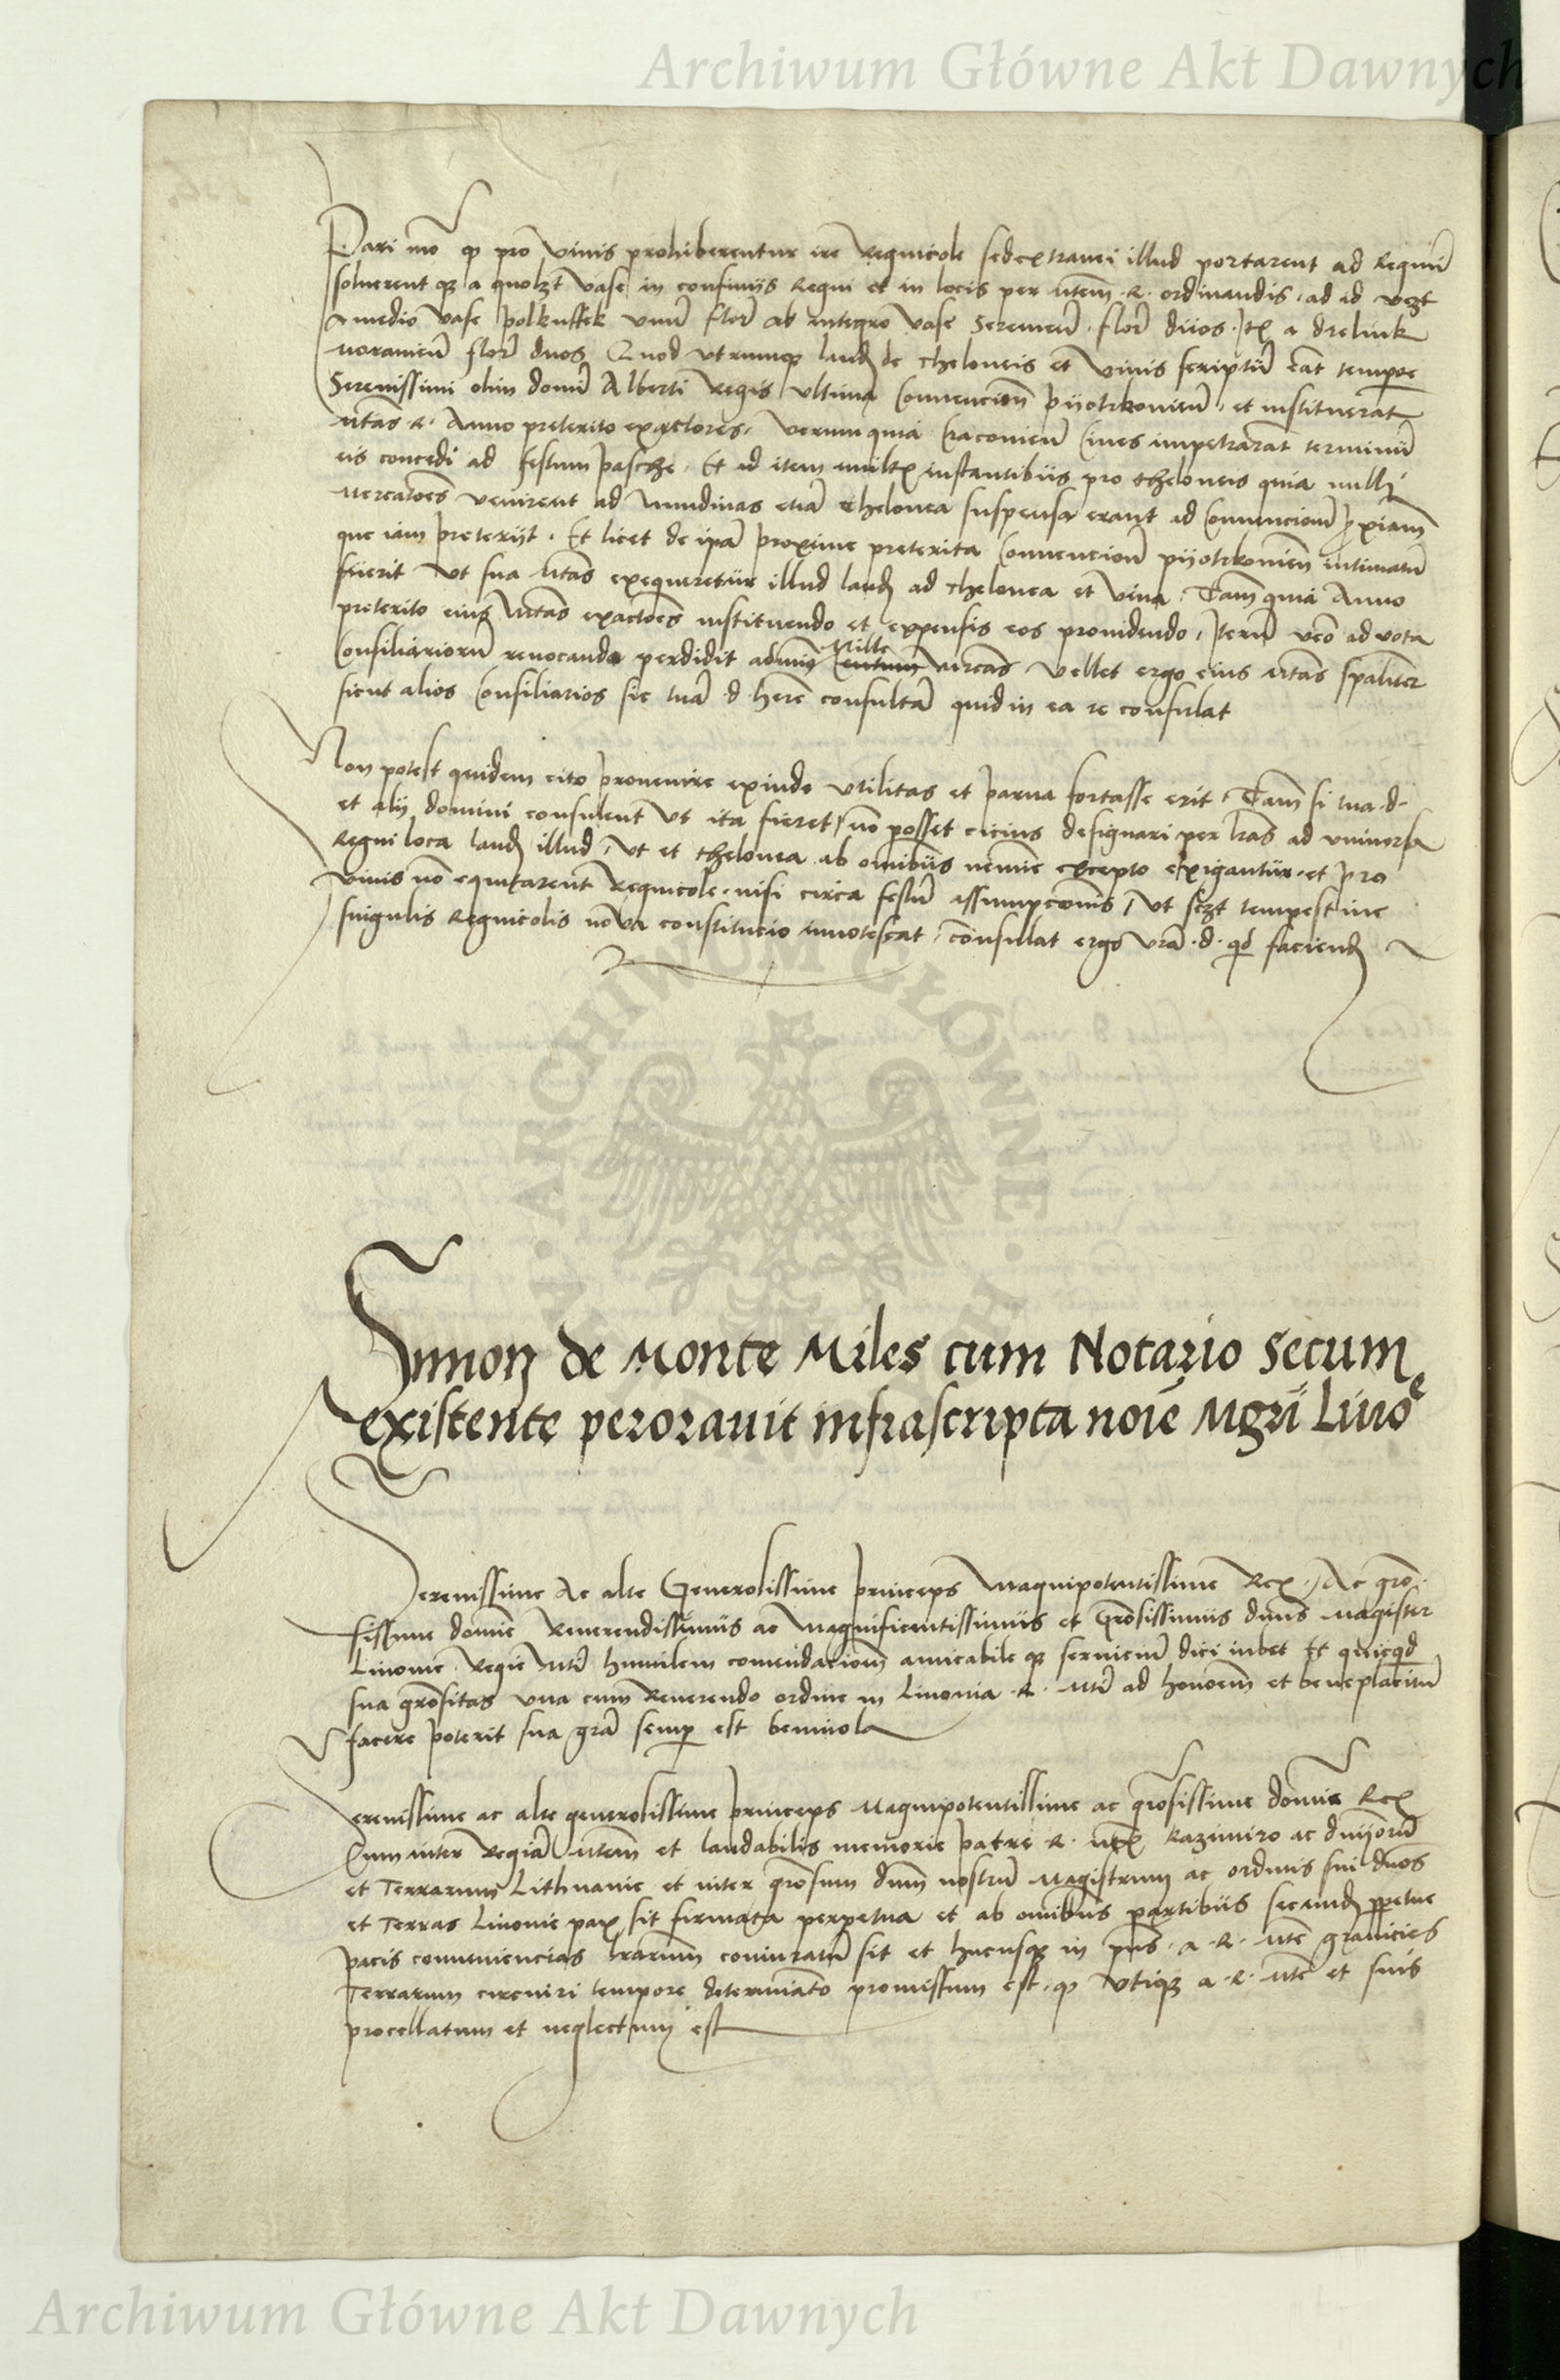 Archiwum Główne Akt Dawnych
Pari mo͞ qͅ pro vinis prohiberentur ire Regnicole sed extranei illud portarent ad Regnu͞
soluerent qꝫ a quolꝫt vase in confinijs Regni et in locis per mtem͞ .R. ordinandis, ad id veꝫt
a medio vase polkuffek vnu͞ flor͞ ab integro vase Seremien͞ . flor͞ duos . Itꝫ a drelink
moravien͞ flor͞ duos Quod utrumqꝫ laud de theloneis et vinis scriptu͞ erat͞ tempore
Serenissimi olim domi͞ Alberti Regis ultima Convencion͞ pijotrkovien͞ , et instituerat
mtas͞ .R. Anno preterito exactores, Verum quia Cracovien͞ Cives impetrarat͞ terminu͞
eis concedi ad festum pasche, Et id item multꝫ instantibus pro theloneis quia nulli
mercatoes͞ venirent ad nundinas etia͞ thelonea suspensa erant ad Convencion͞ p̱xiam͞
que iam preterijt . Et licet de ip͞a proxime preterita Convencion͞ pijotrkovien͞ intimatu͞
fuerit ut sua mtas͞ exequeretur illud laud ad thelonea et vina . Tam͞ quia Anno
preterito eius mtas͞ exactoes͞ instituendo et expensis eos providendo, Iteru͞ v͞eo ad vota
Consiliarioru͞ revocando perdidit adminꝫ Mille Centum mrcas͞ vellet ergo eius mtas͞ sp͞aliter
sicut alios Consiliarios sic tua͞ .d. her͞e consulta͞ quid in ea re consulat
Non potest quidem cito provenire exinde utilitas et parva fortasse erit . Tam͞ si tua .d.
et alij domini consulent ut ita fieret, no͞ posset cicius designari per lr͞as ad universa
Regni loca laud illud, ut et thelonea ab omi͞bus nemi͞e excepto exigantur . et pro
vinis no͞ equitarent Regnicole . nisi circa festu͞ assumpcoi͞s, ut scꝫt tempestive
singulis Regnicolis nova constitucio innotescat, consulat ergo vr͞a .d. qd faciend
ARCHIWUM GŁÓWNE
Simon de Monte Miles cum Notario Secum
existente perorauit infrascripta noi͞e Mgri͞ Liuo͞e
Serenissime Ac alte Generosissime princeps Magnipotentissime Rex . Ac gro͞
sissime domi͞e Reverendissimus ac Magnificentissimus et Gro͞sissimus dnus͞ Magister
Livonie . Regie mti͞ humilem com͞endacionem amicabile qꝫ serviciu͞ dici iubet Et quicqd
sua gro͞sitas una cum Reverendo ordine in Livonia .R. mti͞ ad honoem͞ et beneplacitu͞
facere poterit sua gra͞ semp est benivola
Serenissime ac alte generosissime princeps Magnipotentissime ac gro͞sissime domi͞e Rex
Cum inter Regia͞ mtem͞ et laudabilis memorie patre .R. mtꝫ Kazimiro ac dnijoru͞
et Terrarum Lithuanie et inter gro͞sum dnm͞ nostru͞ Magistrum ac ordinis sui dnos͞
et Terras Livonie pax sit firmata perpetua et ab omi͞bus partibus secund p̱petue
pacis conveniencias lr͞arum coniuratu͞ sit et hucusqꝫ in pns͞ . a .R. mte͞ granicies
Terrarum circuiri tempore determinato promissum est . qͅ utiqꝫ a .R. mte͞ et suis
procellatum et neglectum est
Archiwum Główne Akt Dawnych